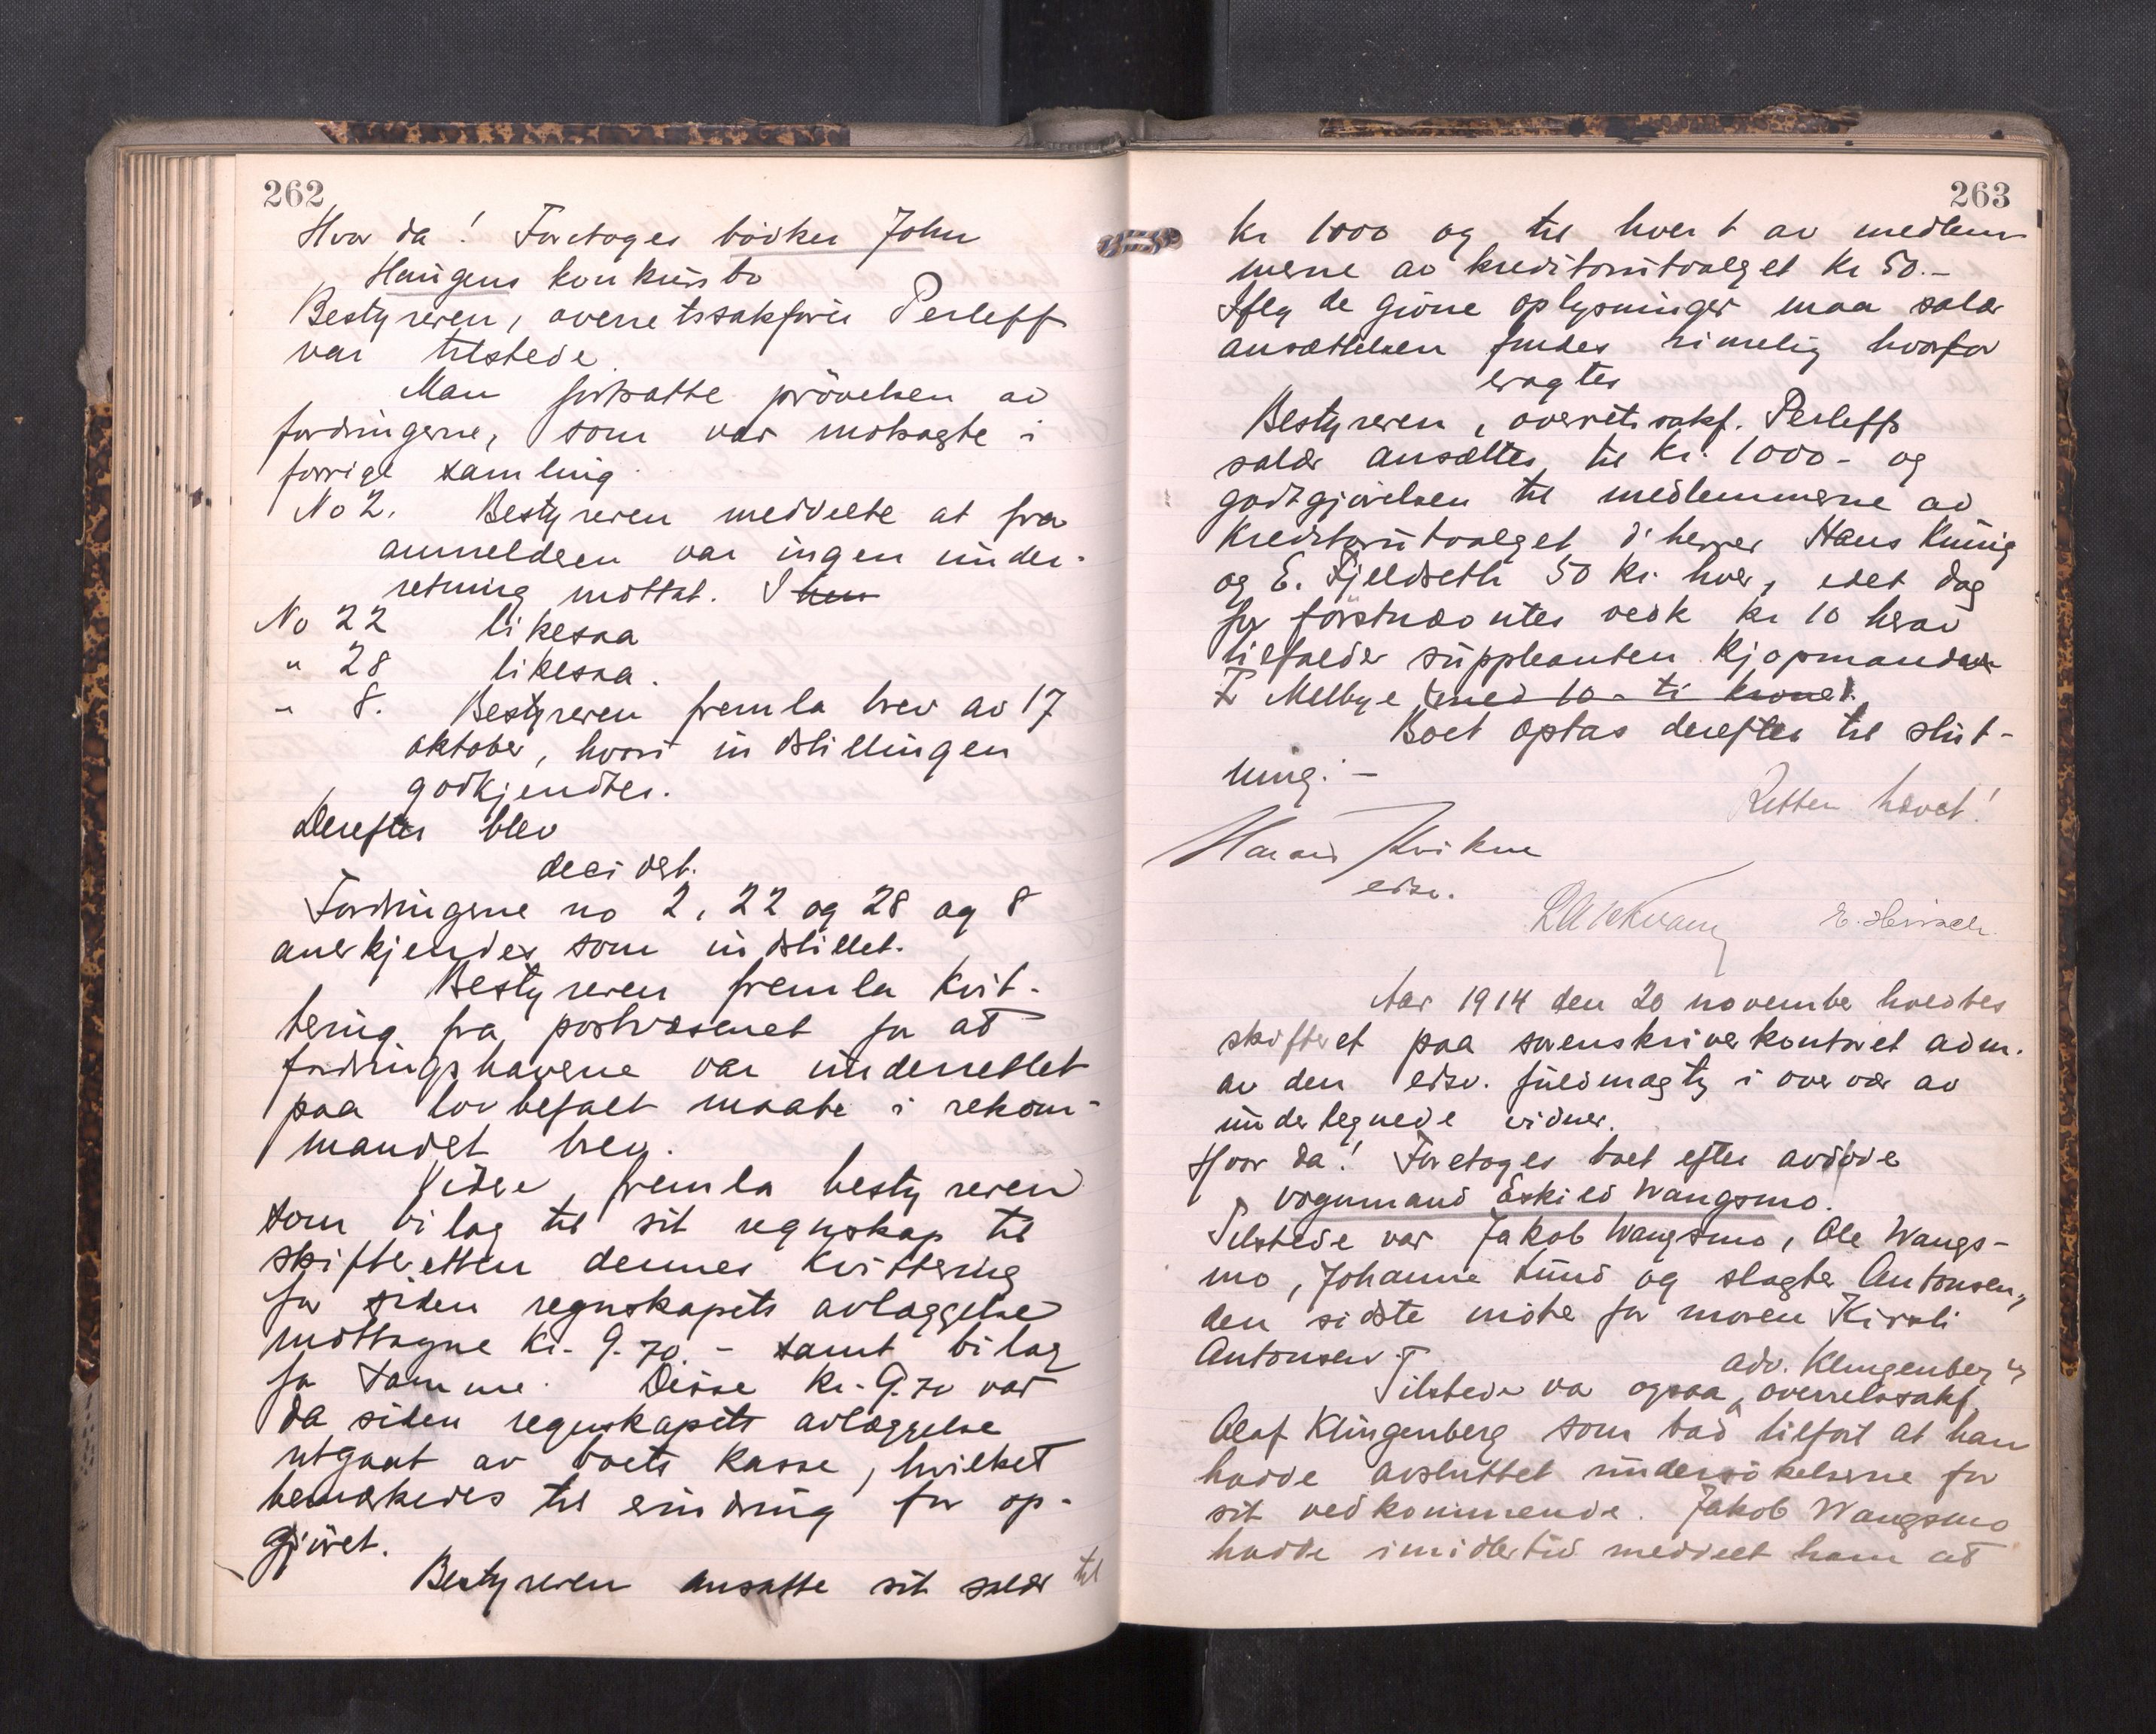 262
Hvor da! Foretoges bödker John
Haugens konkursbo
Bestyreren, overretssakfører Perleff
var tilstede
Man fortsatte prövelsen av
fordringerne, som var motsagte i
forrige samling.
No 2. Bestyreren meddelte at fra
anmelderen var ingen under-
retning mottat. I
No 22 likesaa
" 28 likesaa.
" 8. Bestyreren fremla brev av 17
oktober, hvori indstillingen
godkjendtes.
Derefter blev
decidert.
Fordringerne no 2, 22 og 28 og 8
anerkjendes som indstillet.
Bestyreren fremla kvit-
tering fra postvæsenet for at
fordringshaverne var underrettet
paa lovbefalt maate i rekom-
mandert brev.
Videre fremla bestyreren
som bilag til sit regnskap til
skifteretten dennes kvittering
for siden regnskapets avlæggelse
mottagne kr. 9.70. - samt bilag
for samme. Disse kr. 9.70 var
da siden regnskapets avlæggelse
utgaat av boets kasse, hvilket
bemerkedes til erindring for op-
gjöret.
Bestyreren ansatte sit salær til
263
kr 1000 og til hvert av medlem-
merne av kreditorutvalget kr 50.-
Ifølg de givne oplysninger maa salær
ansættelsen findes rimelig hvorfor
eragtes
Bestyreren, overretssakf. Perleffs
salær ansættes til kr. 1000- og
godtgjörelsen til medlemmerne av
kreditorutvalget d'herrer Hans König
og E. Fjeldseth 50 kr. hver, idet dog
for förstnævntes vedk kr 10 herav
tilfalder suppleanten kjøpmand
F Melbye med 10 - ti kroner.
Boet optas derefter til slut-
ning. -
Retten hævet!
Kvikne
edsv.
Aar 1914 den 20 november holdtes
skifteret paa sorenskriverkontoret adm.
av den edsv. fuldmægtig i overvær av
undertegnede vidner.
Hvor da! Foretoges boet efter avdöde
vognmand Eskild Wangsmo.
Tilstede var Jakob Wangsmo, Ole Wangs-
mo, Johanne Lund og slagter Antonsen,
den sidste møtte for moren Kirsti
Antonsen.
adv. Klingenberg's
Tilstede var ogsaa overretssakf.
Olaf Klingenberg som bad tilfört at han
hadde avsluttet undersökelserne for
sit vedkommende. Jakob Wangsmo
hadde imidlertid meddelt ham at